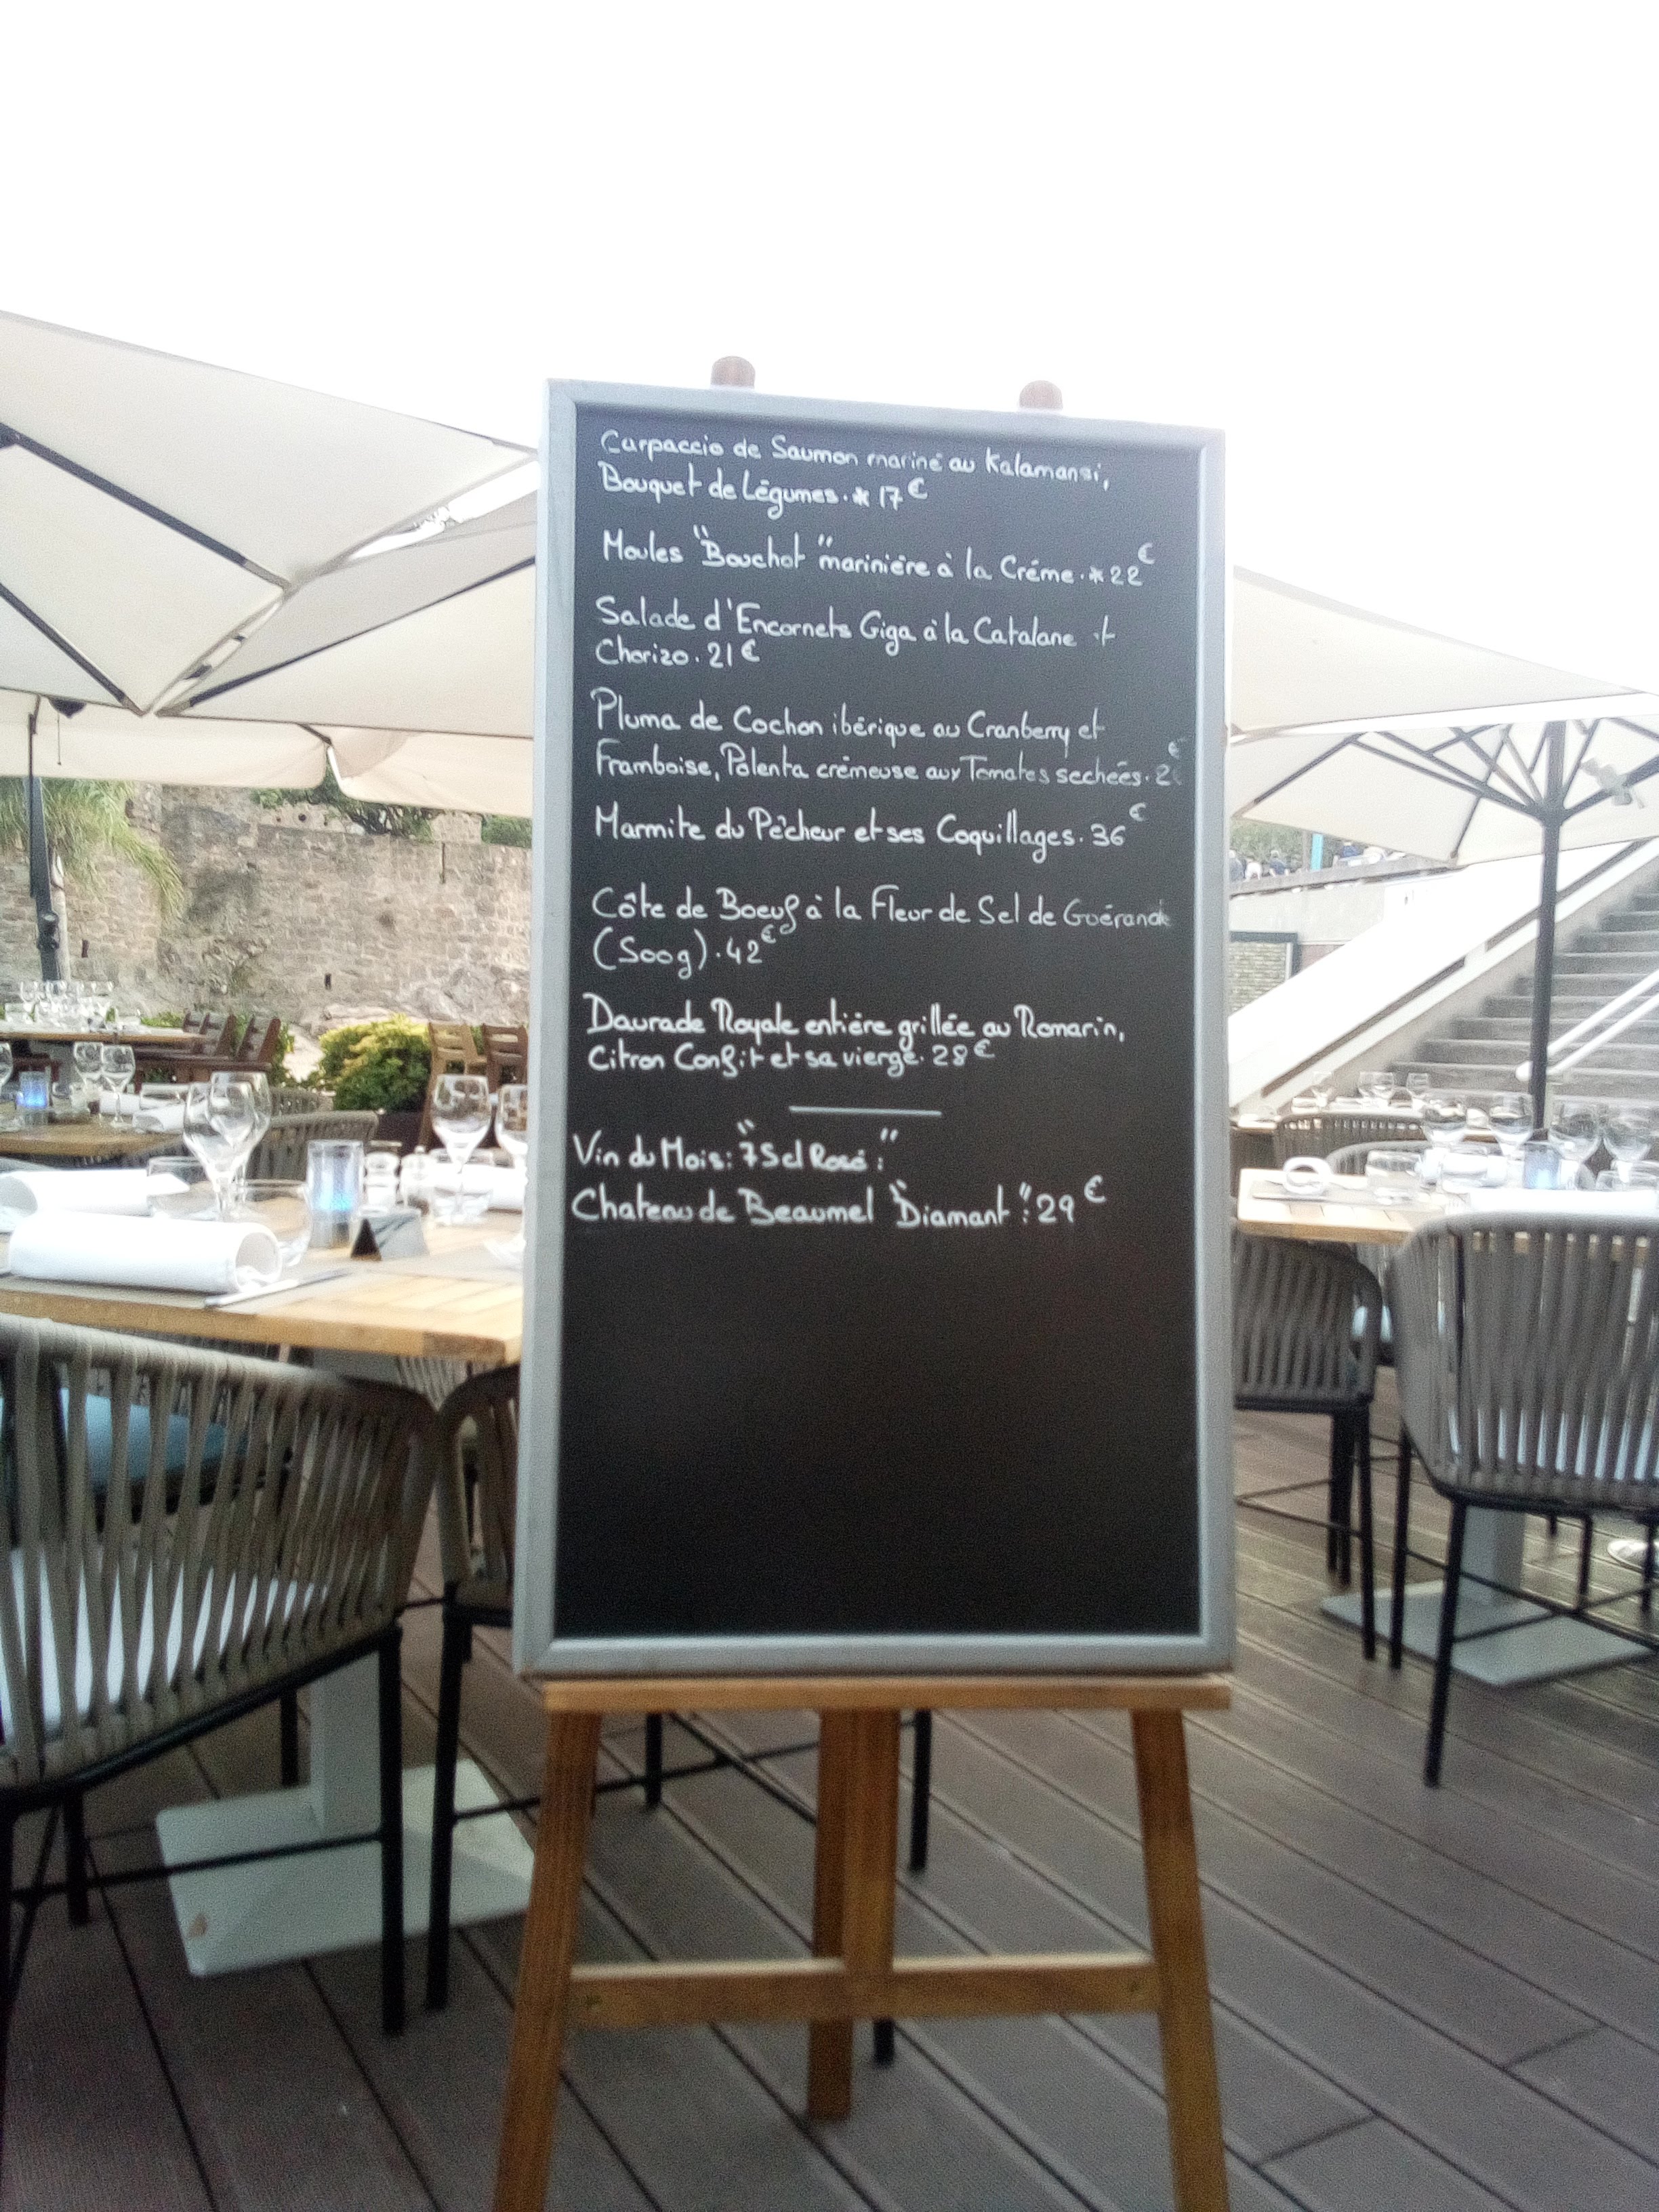 Carpaccio de Saumon mariné au Kalamansi,
Bouquet de Légumes.* 17€
Moules "Bouchot" marinière à la Créme.* 22€
Salade d'Encornets Giga à la Catalane et
Chorizo. 21€
Pluma de Cochon ibérique au Cranberry et
Framboise, Polenta crémeuse aux Tomates sechées.
Marmite du Pêcheur et ses Coquillages. 36€
Côte de Boeuf à la Fleur de Sel de Guérande
(500g). 42€
Daurade Royale entière grillée au Romarin,
Citron Confit et sa vierge. 28€
Vin du Mois: "7Sel Rosé:"
Chateau de Beaumel "Diamant": 29€